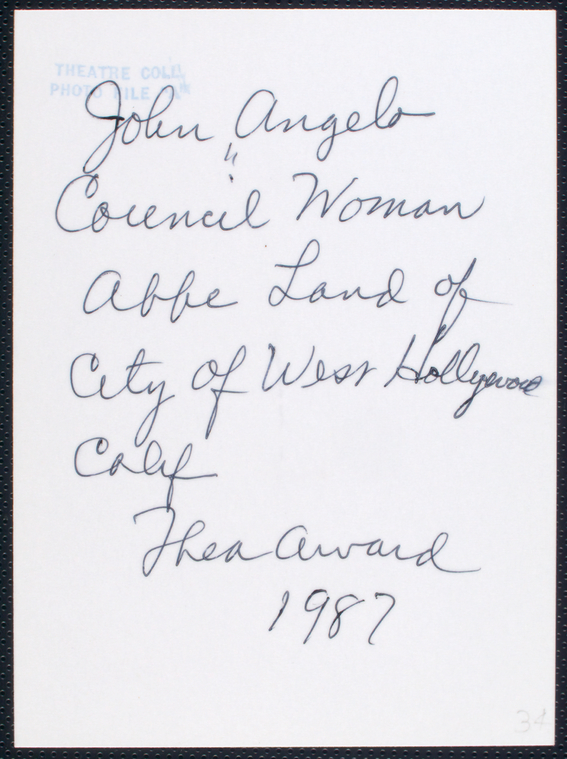 THEATRE COLL.
PHOTO FILE "A"
John Angelo
"
Council Woman
Abbe Land of
City of West Hollywood
Calif
Thea Award
1987
34